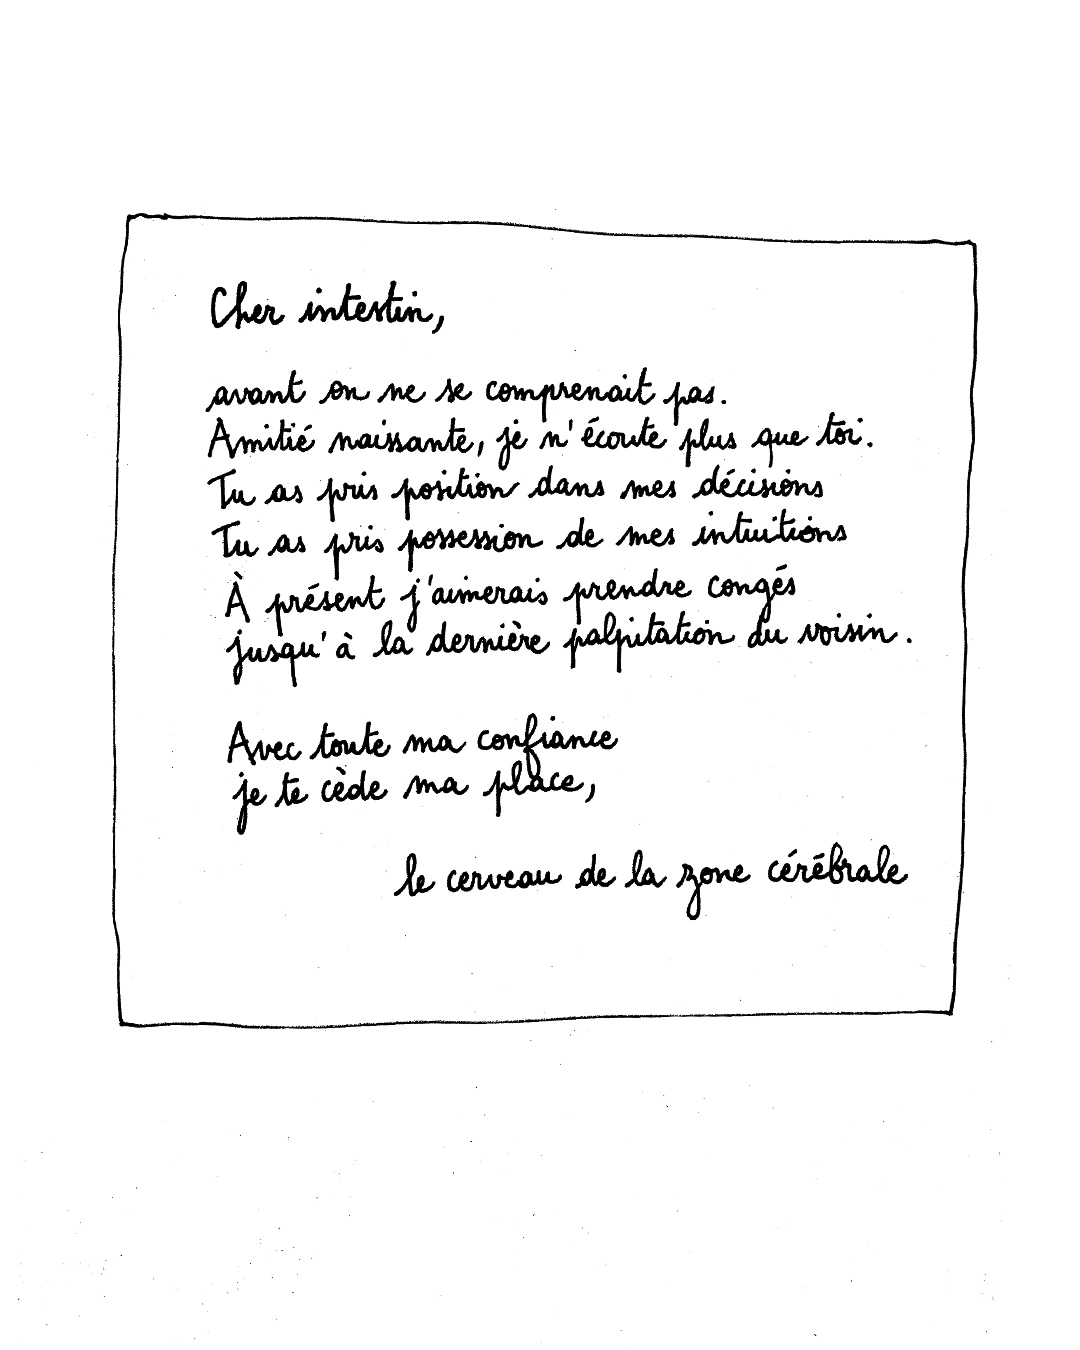 Cher intestin,
avant on ne se comprenait pas.
Amitié naissante, je n'écoute plus que toi.
Tu as pris position dans mes décisions
Tu as pris possession de mes intuitions
À présent j'aimerais prendre congés
jusqu'à la dernière palpitation du voisin.
Avec toute ma confiance
je te cède ma place,
le cerveau de la zone cérébrale